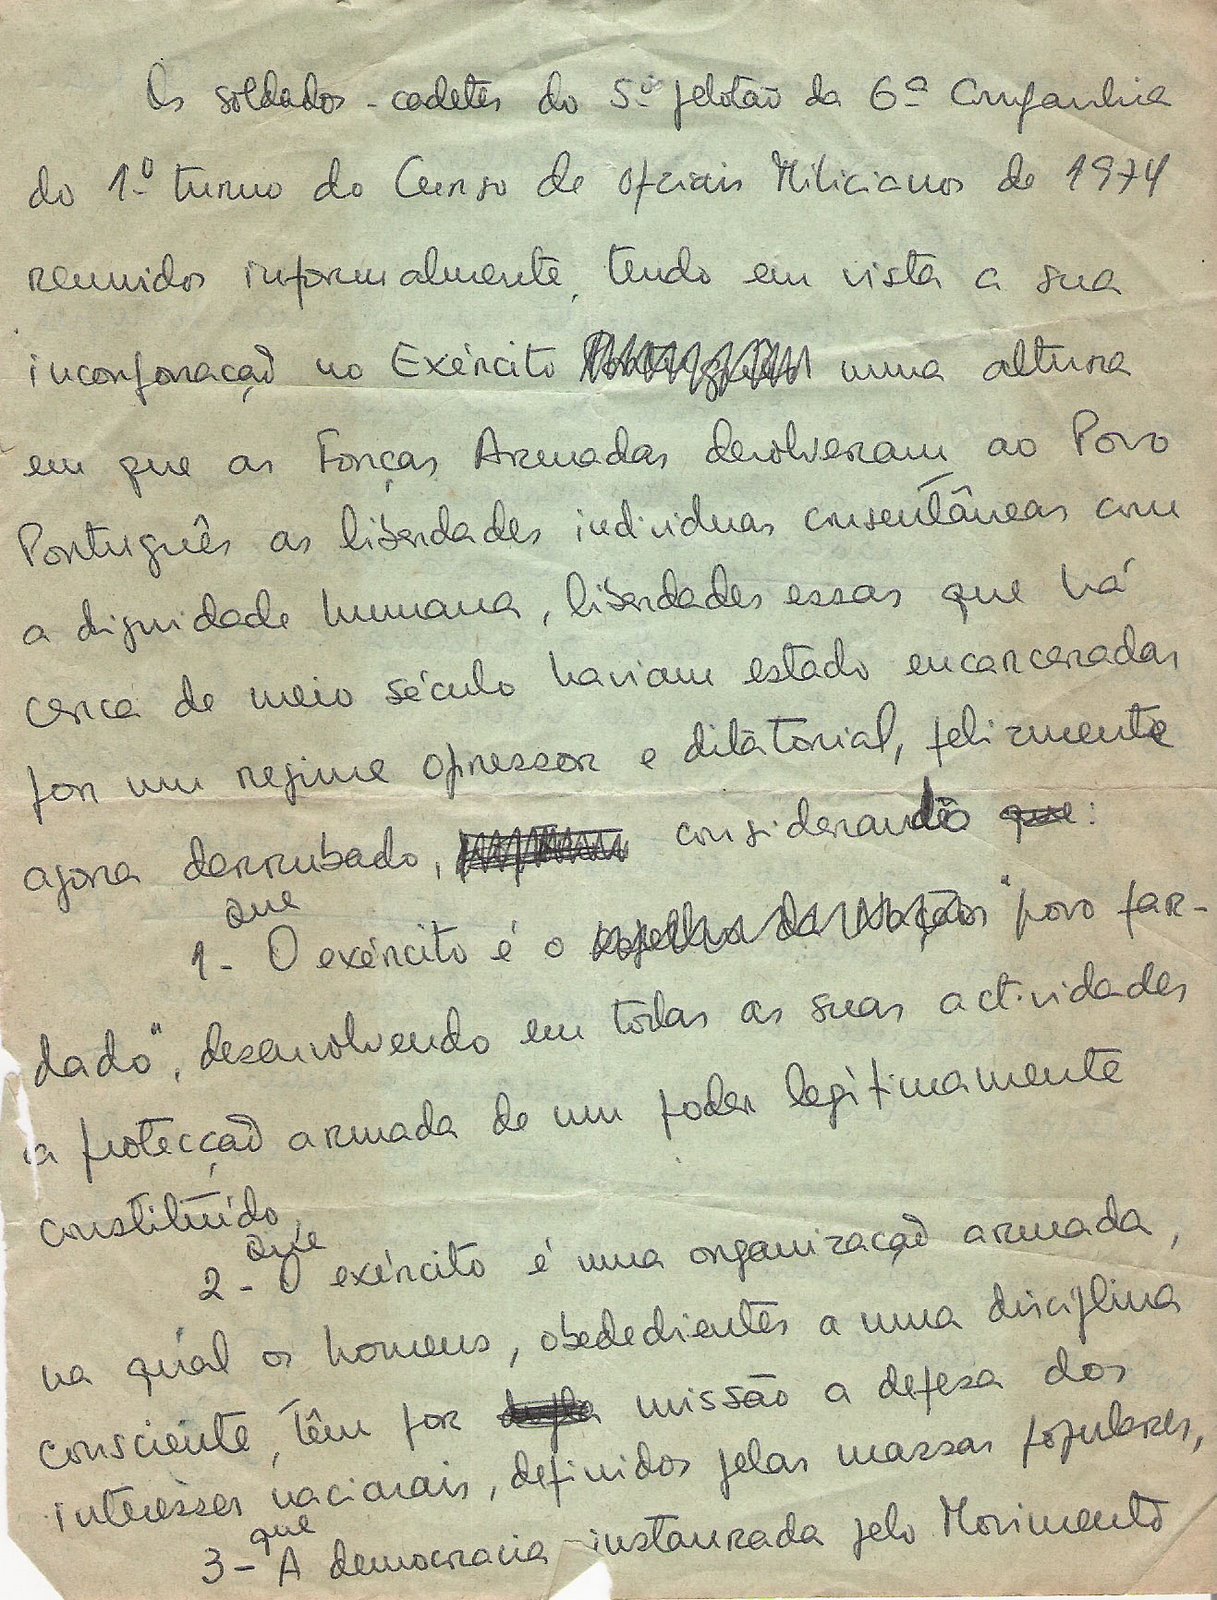 Os soldados-cadetes do 5º pelotão da 6ª Companhia
do 1º turno do Curso de Oficiais Milicianos de 1974
reunidos informalmente, tendo em vista a sua
incorporação no Exército numa altura
em que as Forças Armadas devolveram ao Povo
Português as liberdades individuas consentâneas com
a dignidade humana, liberdades essas que há
cerca de meio século haviam estado encarceradas
por um regime opressor e ditatorial, felizmente
agora derrubado, considerando que:
que
1- O exército é o espelho da Nação "povo far-
dado", desenvolvendo em todas as suas actividades
a protecção armada de um poder legítimamente
constituído,
que
2- O exército é uma organização armada,
na qual os homens, obededientes a uma disciplina
consciente, têm por dupla missão a defesa dos
interesses nacionais, definidos pelas massas populares,
que
3- A democracia instaurada pelo Movimento